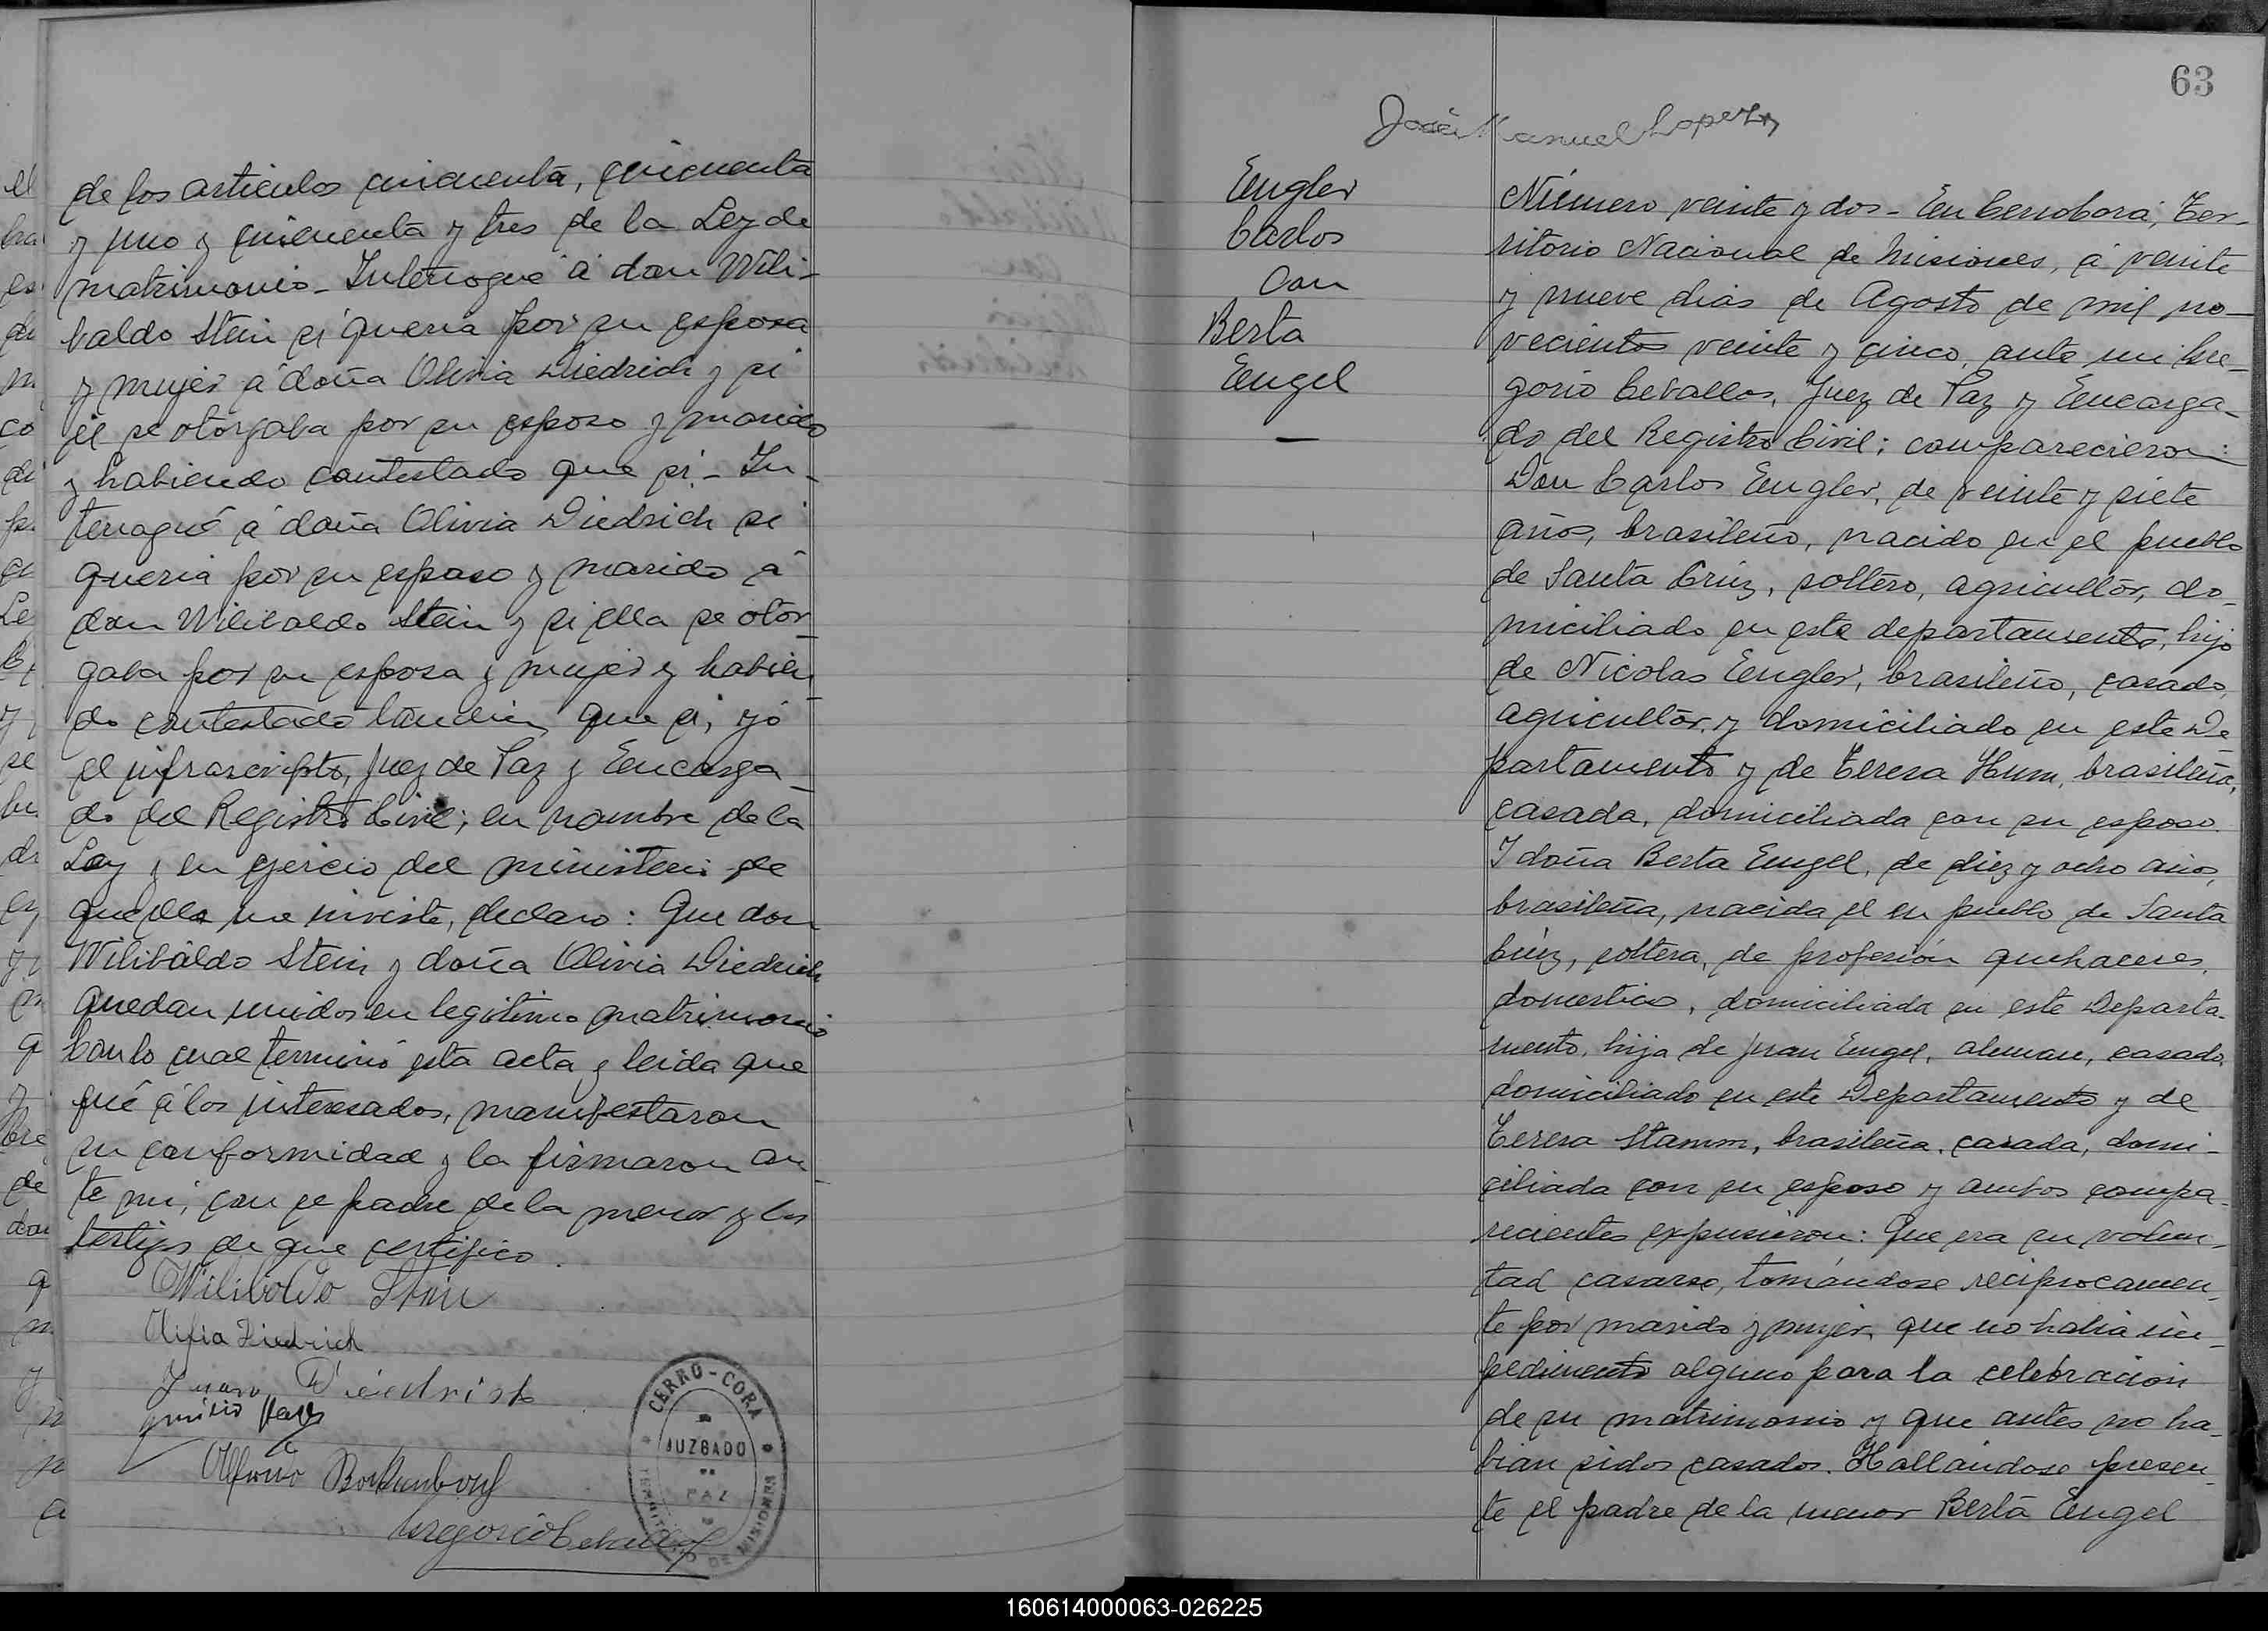 de los articulos cincuenta, cincuenta
y uno y cincuenta y tres de la Ley de
matrimonio - Interrogué á don Wili-
baldo Stein si queria por su esposa
y mujer á doña Olivia Diedrich y si
él se otorgaba por su esposo y marido
y habiendo contestado que si - In-
terrogué á doña Olivia Diedrich si
queria por su esposo y marido á
don Wilibaldo Stein y si ella se otor-
gaba por su esposa y mujer y habien-
do contestado tambien que si, yó
el infrascripto, Juez de Paz y Encarga-
do del Registro Civil; en nombre de la
Ley y en ejercio del ministerio de
que ella me inviste, declaro: Que don
Wilibáldo Stein y doña Olivia Diedrich
quedan unidos en legitimo matrimonio
Con lo cual terminó esta acta y leida que
fué á los interesados, manifestaron
su conformidad y la firmaron an-
te mi, con el padre de la menor y los
testigos de que certifico.
Wilibaldo Stein
Olifia Diedrich
Juan Diedrich
Alfonso
Gregorio Ceballos
CERRO-CORA
JUZGADO
DE
PAZ
TERRITORIO DE MISIONES
63
José Manuel Lopez
Engler
Carlos
Con
Berta
Engel
Número veinte y dos - En Cerrocorá, Ter-
ritorio Nacional de Misiones, á veinte
y nueve dias de Agosto de mil no-
vecientos veinte y cinco, ante mi Gre-
gorio Ceballos, Juez de Paz y Encarga-
do del Registro Civil; comparecieron:
Don Carlos Engler, de veinte y siete
años, brasileño, nacido en el pueblo
de Santa Crúz, soltero, agricultor, do-
miciliado en este departamento, hijo
de Nicolas Engler, brasileño, casado,
agricultor y domiciliado en este De-
partamento y de Teresa Hum, brasileña,
casada, domiciliada con su esposo.
I doña Berta Engel, de diez y ocho años,
brasileña, nacida el en pueblo de Santa
Crúz, soltera, de profesión quehaceres
domestico, domiciliada en este Departa-
mento, hija de Juan Engel, aleman, casado,
domiciliado en este Departamento y de
Teresa Stamm, brasileña, casada, domi-
ciliada con su esposo y ambos compa-
recientes expusieron: Que era su volun-
tad casarse, tomándose reciprocamen-
te por marido y mujer, que no habia im-
pedimento alguno para la celebración
de su matrimonio y que antes no ha-
bian sidos casados. Hallándose presen-
te el padre de la menor Berta Engel
160614000063-026225